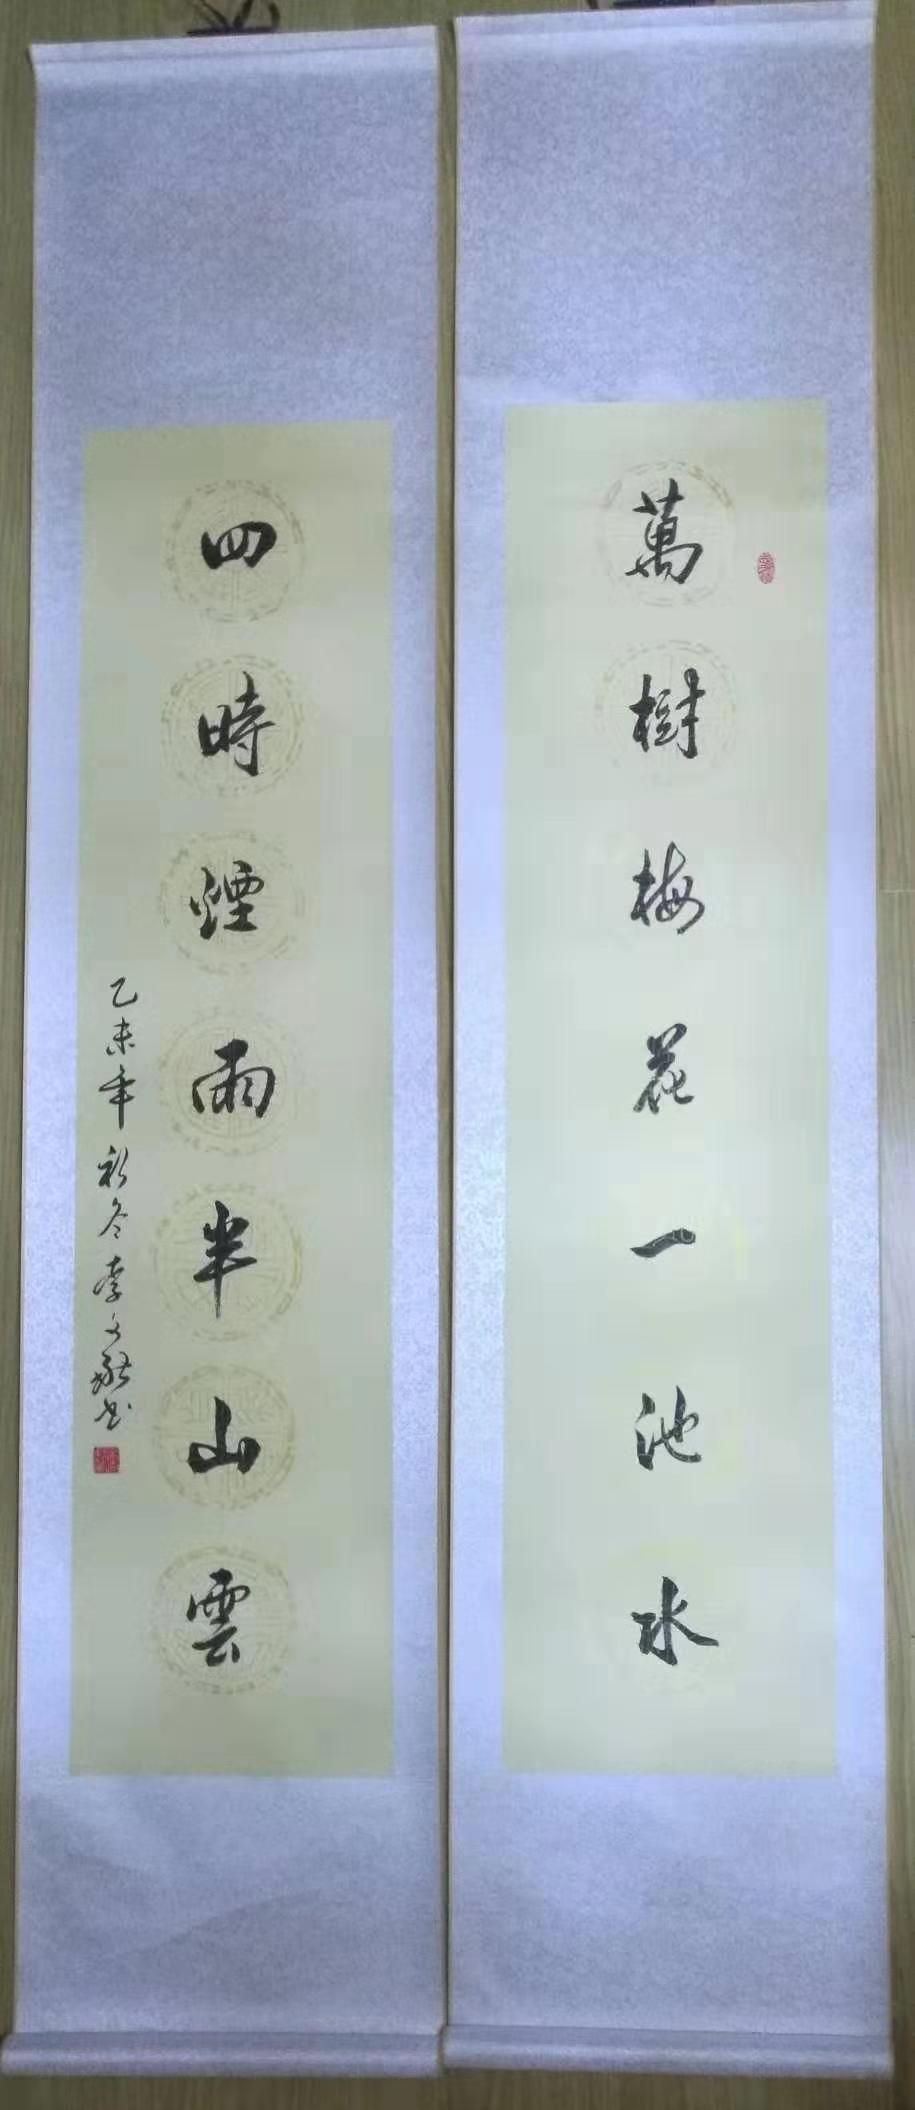 萬樹梅花一池水
四時煙雨半山雲
乙未年初冬李文聚书